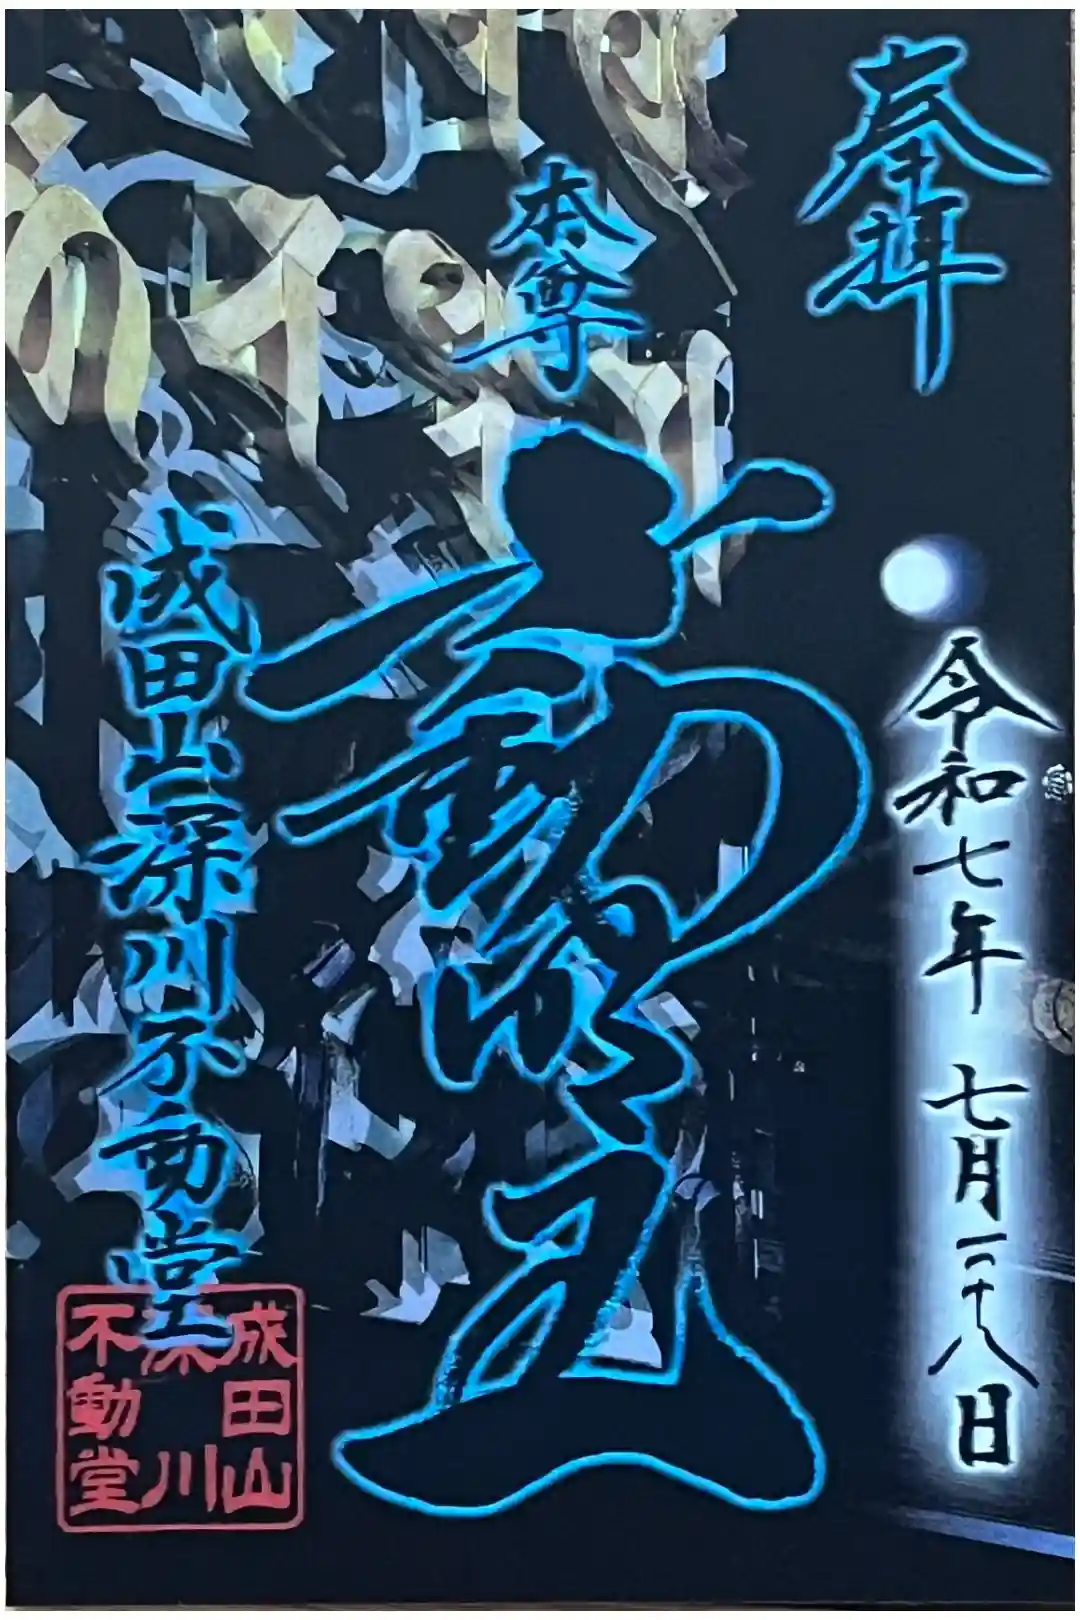 奉拝
令和七年 七月二十八日
本尊
不動明王
成田山深川不動堂
成田山
深川
不動堂